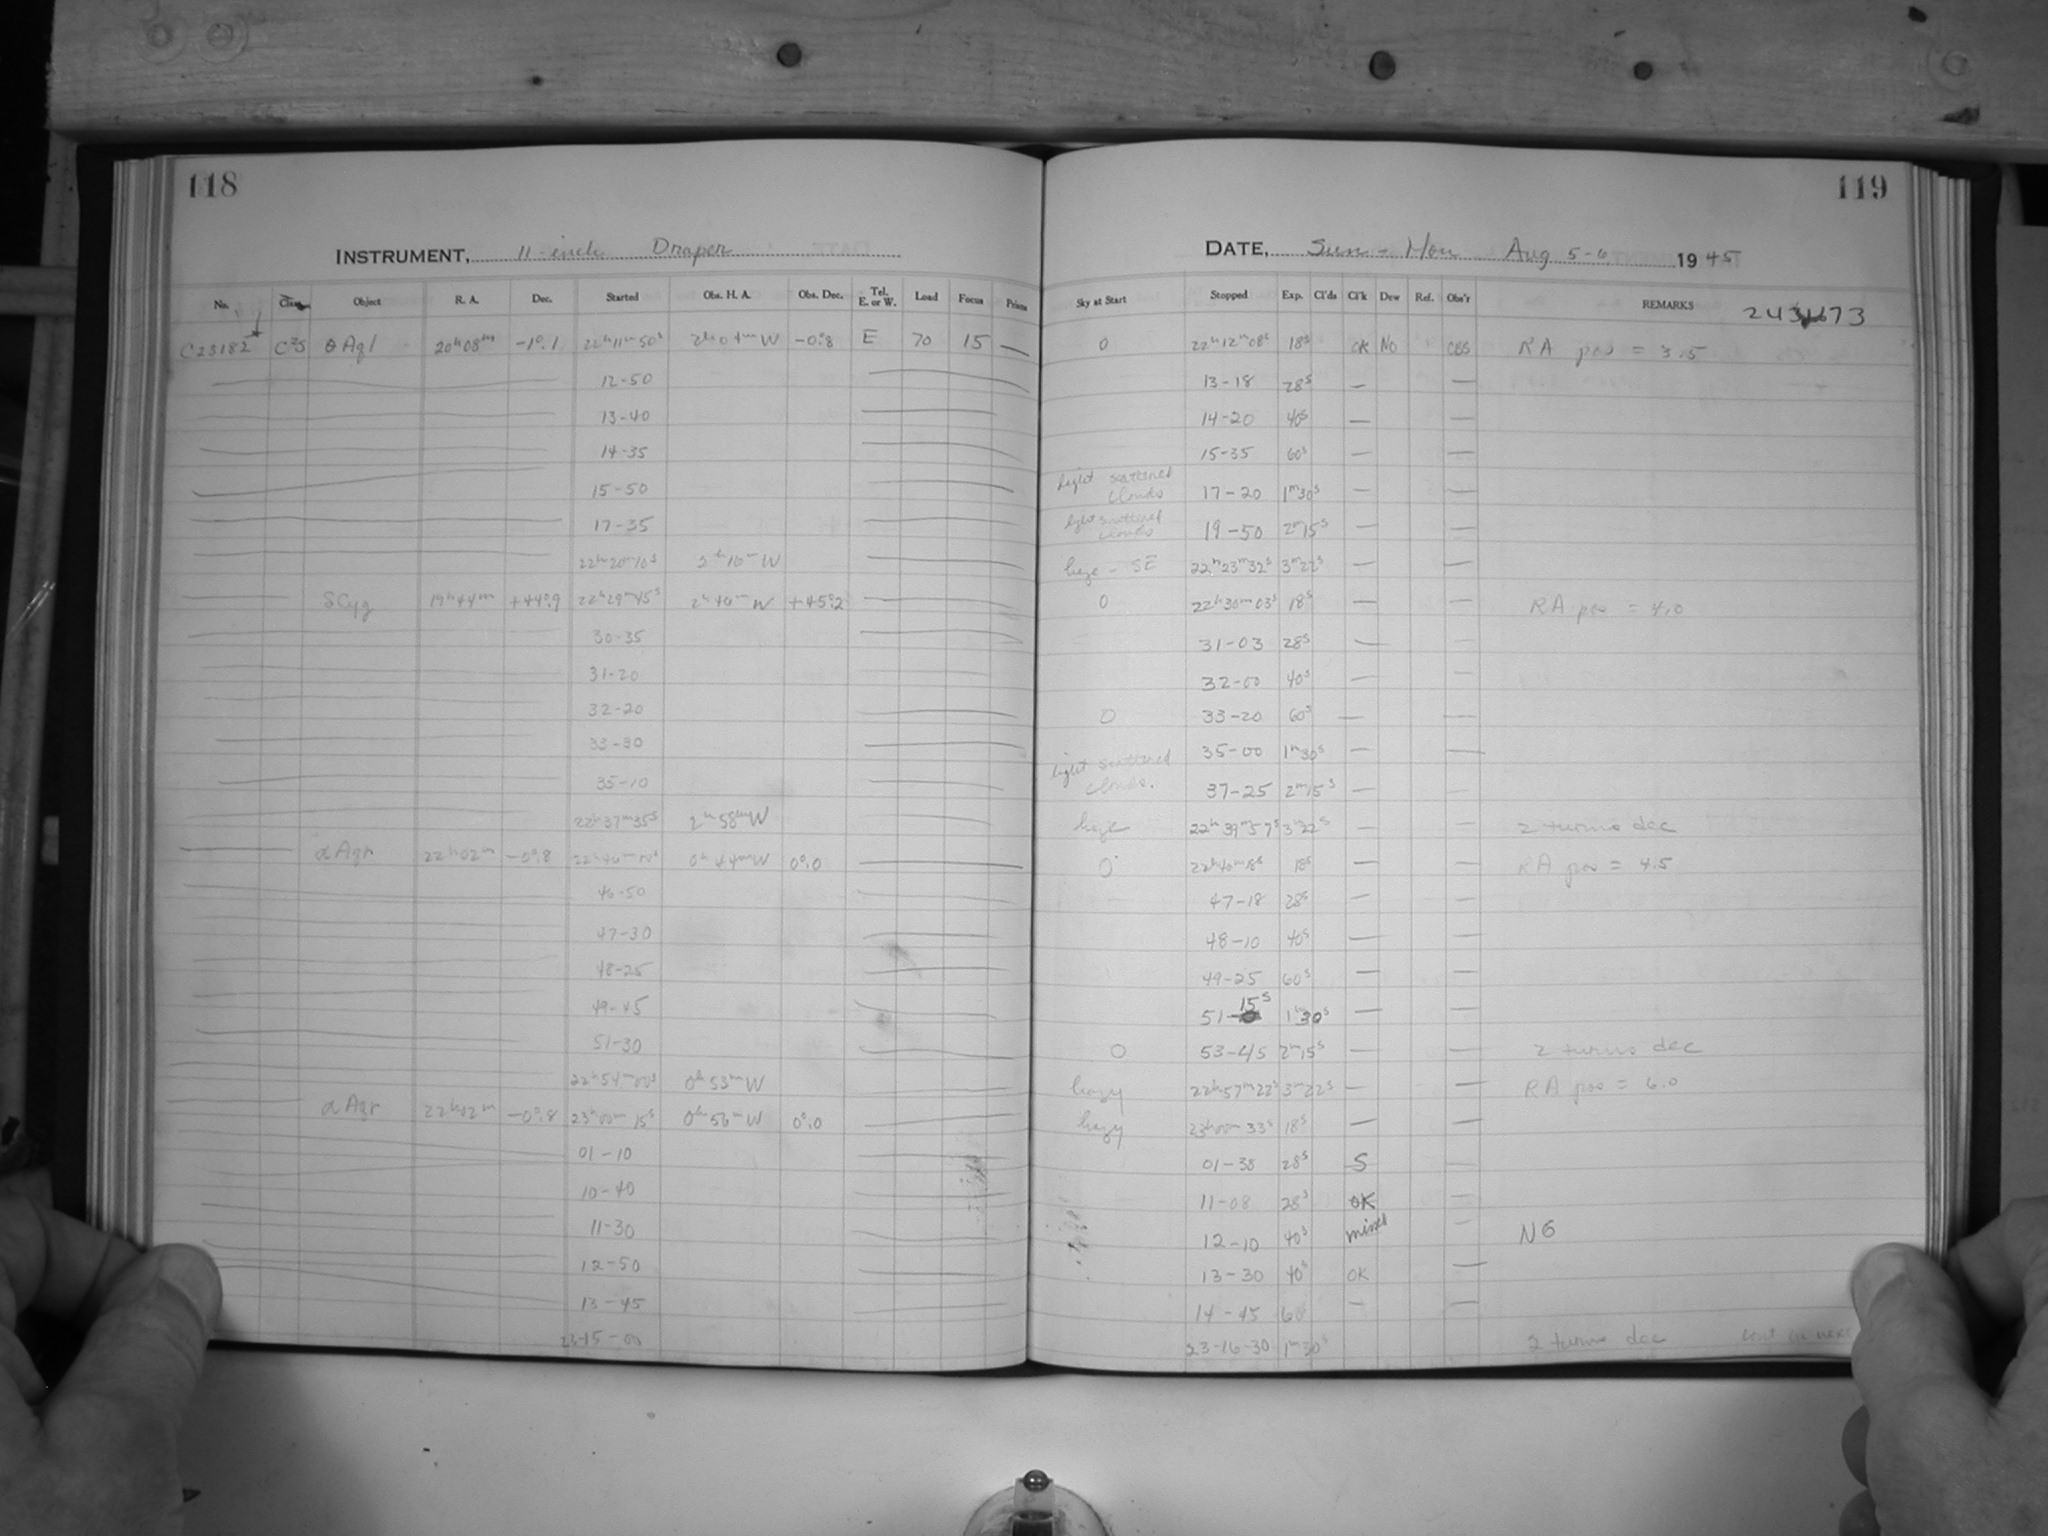 118
INSTRUMENT, 11-inch Draper
No. Class Object R. A. Dec. Started Obs. H. A. Obs. Dec. Tel. E. or W. Load Focus Prisms
C23182 θ Aql 20h08m -1°.1 22h11m50s 2h04mW -0°.8 E 70 15 —
12-50
13-40
14-35
15-50
17-35
22h20m10s 2h10mW
δ Cyg 19h44m +44°.9 22h29m45s 2h46mW +45°.2
30-35
31-20
32-20
33-30
35-10
22h37m35s 2h58mW
α Aqr 22h02m -0°.8 0h44mW 0°.0
46-50
47-30
48-25
49-45
51-30
22h54m00s 0h53mW
α Aqr 22h02m -0°.8 23h00m15s 0h56mW 0°.0
01-10
10-40
11-30
12-50
13-45
23-15-00
119
DATE, Sun - Mon Aug 5-6 1945
Sky at Start Stopped Exp. Cl'ds Cl'k Dew Ref. Obs'r REMARKS 2431673
0 22h12m08s 18s OK No CBS RA pos = 3.5
13-18 28s — —
14-20 40s — —
15-35 60s — —
light scattered clouds 17-20 1m30s — —
light scattered clouds 19-50 2m15s — —
haze - SE 22h23m32s 3m22s — —
0 22h30m03s 18s — — RA pos = 4.0
31-03 28s — —
32-00 40s — —
0 33-20 60s — —
35-00 1m30s — —
light scattered clouds. 37-25 2m15s — —
haze 22h39m57s 3m22s — — 2 turns dec
0 22h46m18s 18s — — RA pos = 4.5
47-18 28s — —
48-10 40s — —
49-25 60s — —
51-15s 1m30s — —
0 53-45 2m15s — — 2 turns dec
hazy 22h57m22s 3m22s — — RA pos = 6.0
hazy 23h00m33s 18s — —
01-38 28s S —
11-08 28s OK —
12-10 40s missed — NG
13-30 40s OK —
14-45 60 — —
23-16-30 1m30s 2 turns dec cont on next